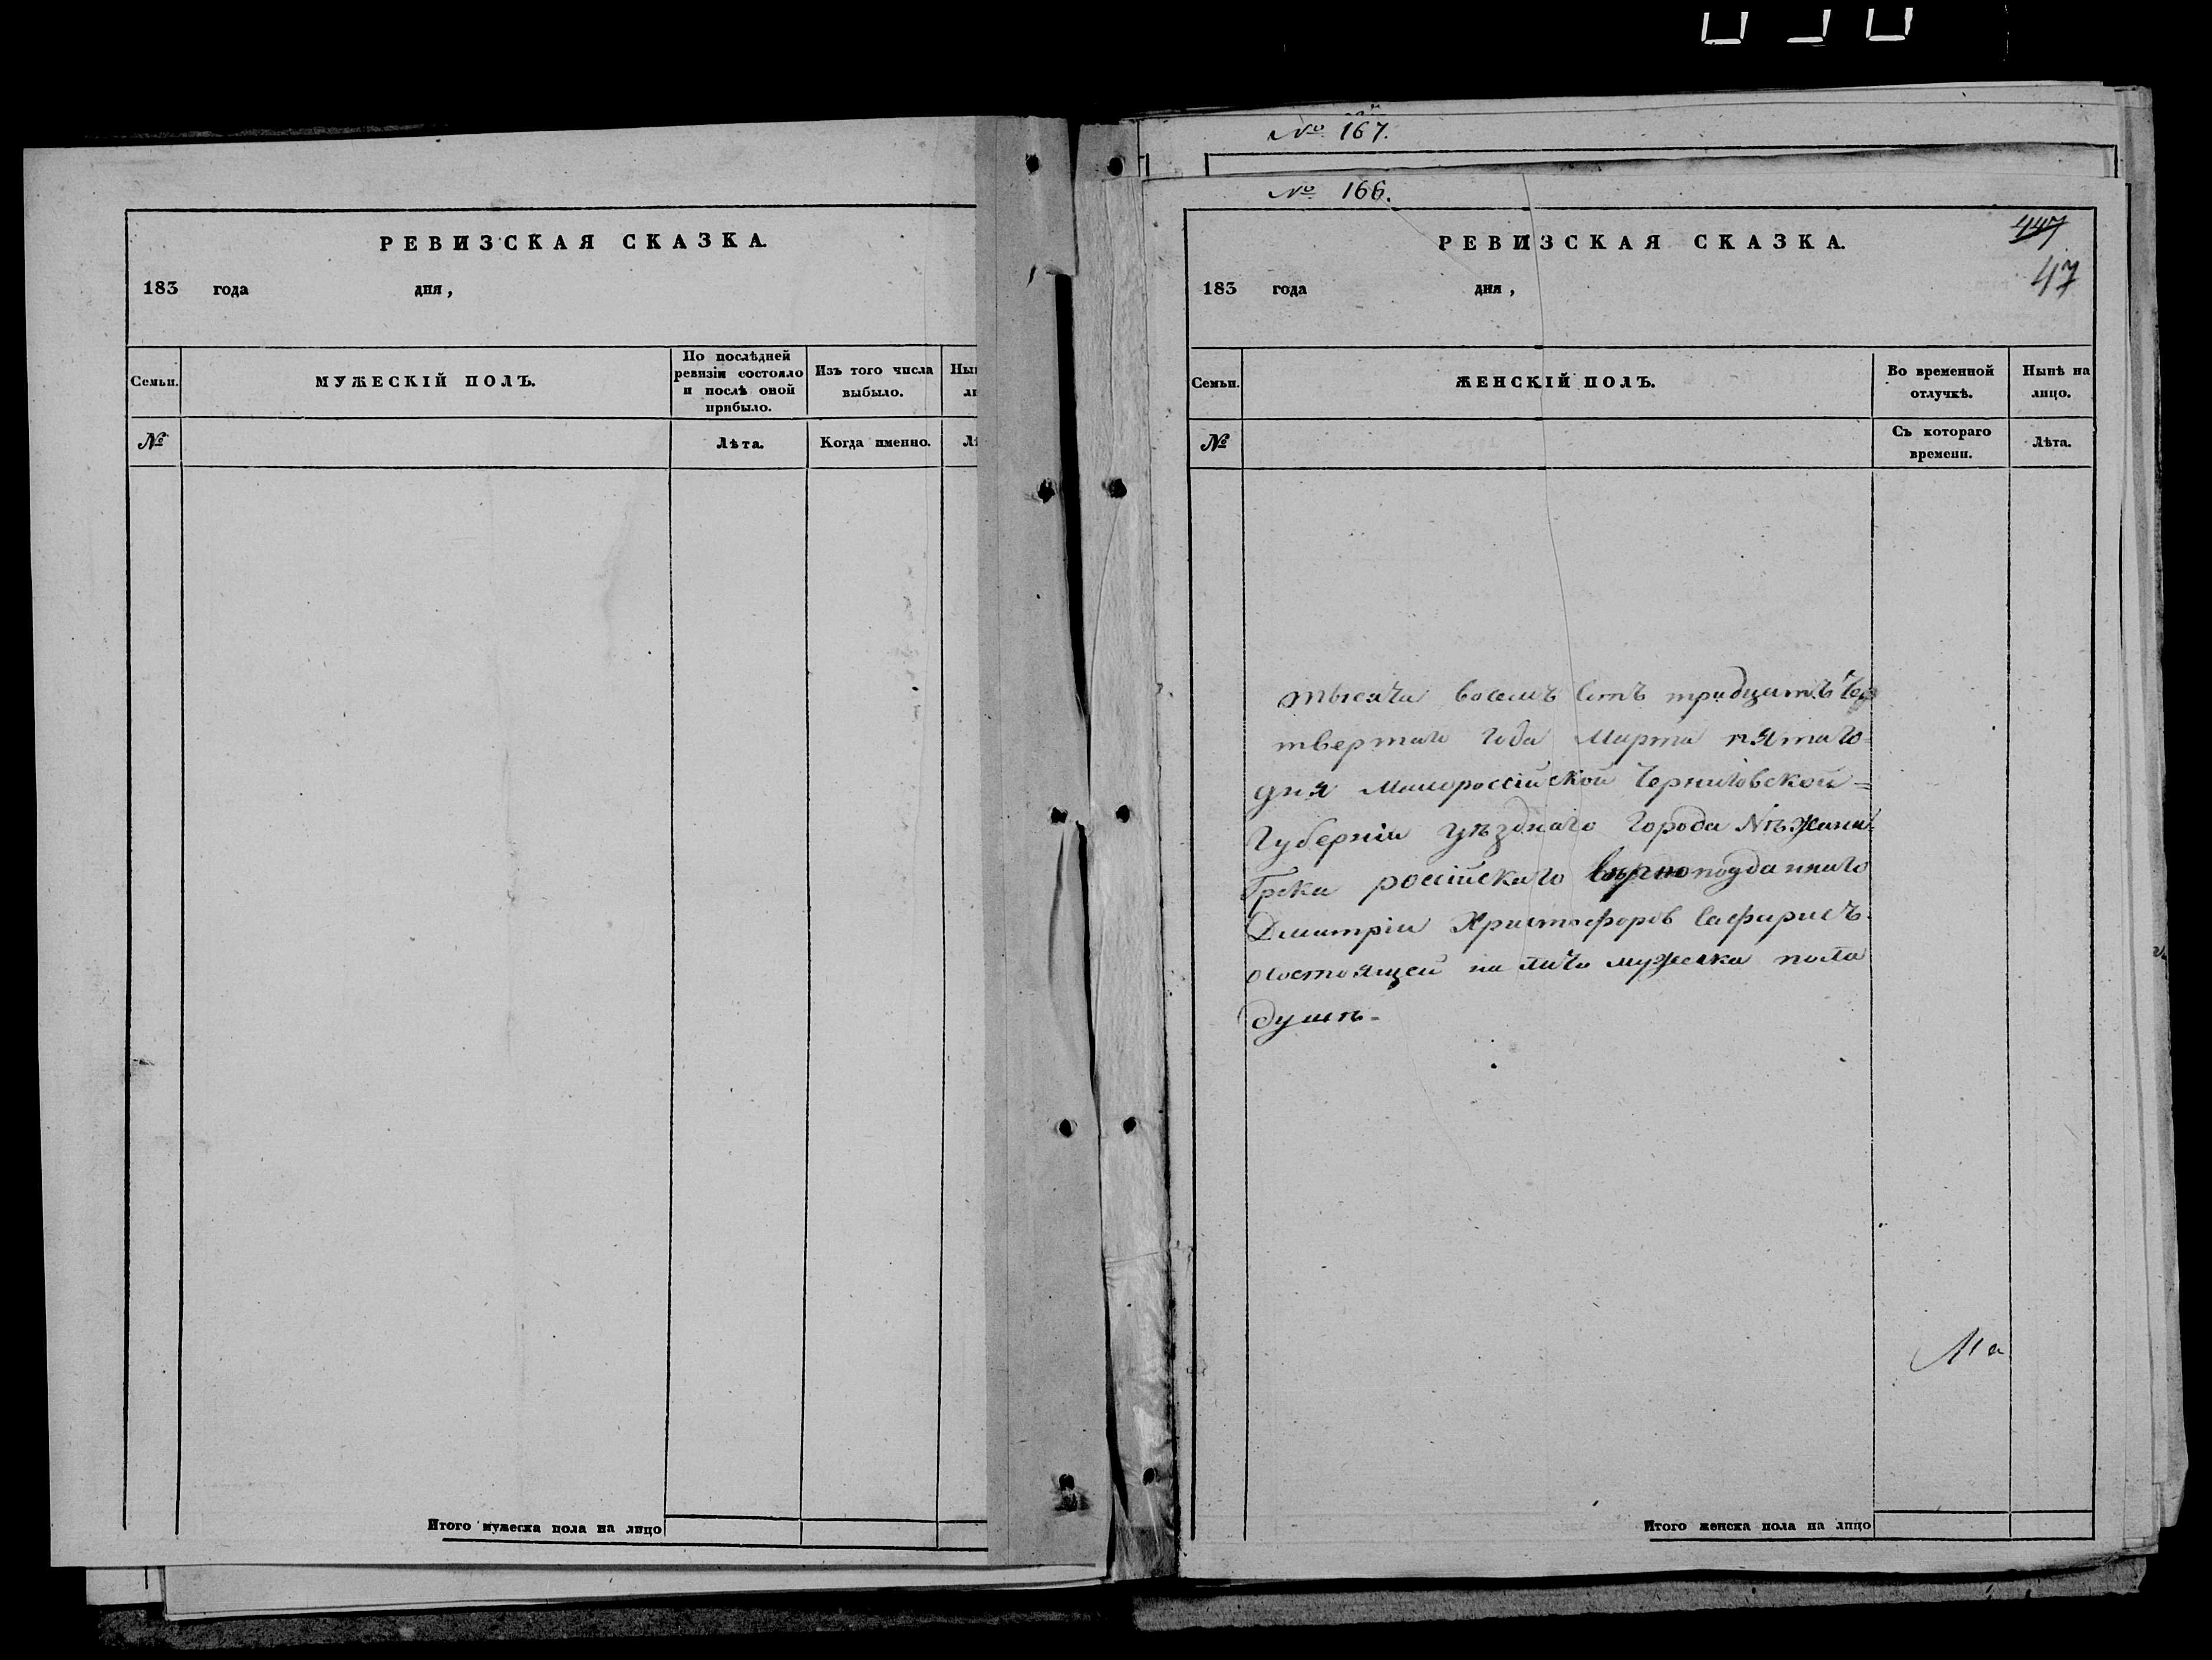 РЕВИЗСКАЯ СКАЗКА.
183 года дня,
Семьи.
МУЖЕСКІЙ ПОЛЪ.
По послѣдней
ревизіи состояло
и послѣ оной
прибыло.
Изъ того числа
выбыло.
№
Лѣта.
Когда именно.
Итого мужеска пола на лицо
№ 167.
№ 166.
447
47
РЕВИЗСКАЯ СКАЗКА.
183 года дня,
Семьи.
ЖЕНСКІЙ ПОЛЪ.
Во временной
отлучкѣ.
Нынѣ на
лицо.
№
Съ котораго
времени.
Лѣта.
тысяча восемъ сотъ тридцать чет
твертаго года Марта пятаго
дня Малороссійской Черниговской=
Губерніи уѣзднаго города Нѣжина
Грека россійскаго вѣрноподданнаго
Дмитрія Христофоров Сафирисъ
о состоящей на лицо мужеска пола
душѣ-
Ма
Итого женска пола на лицо